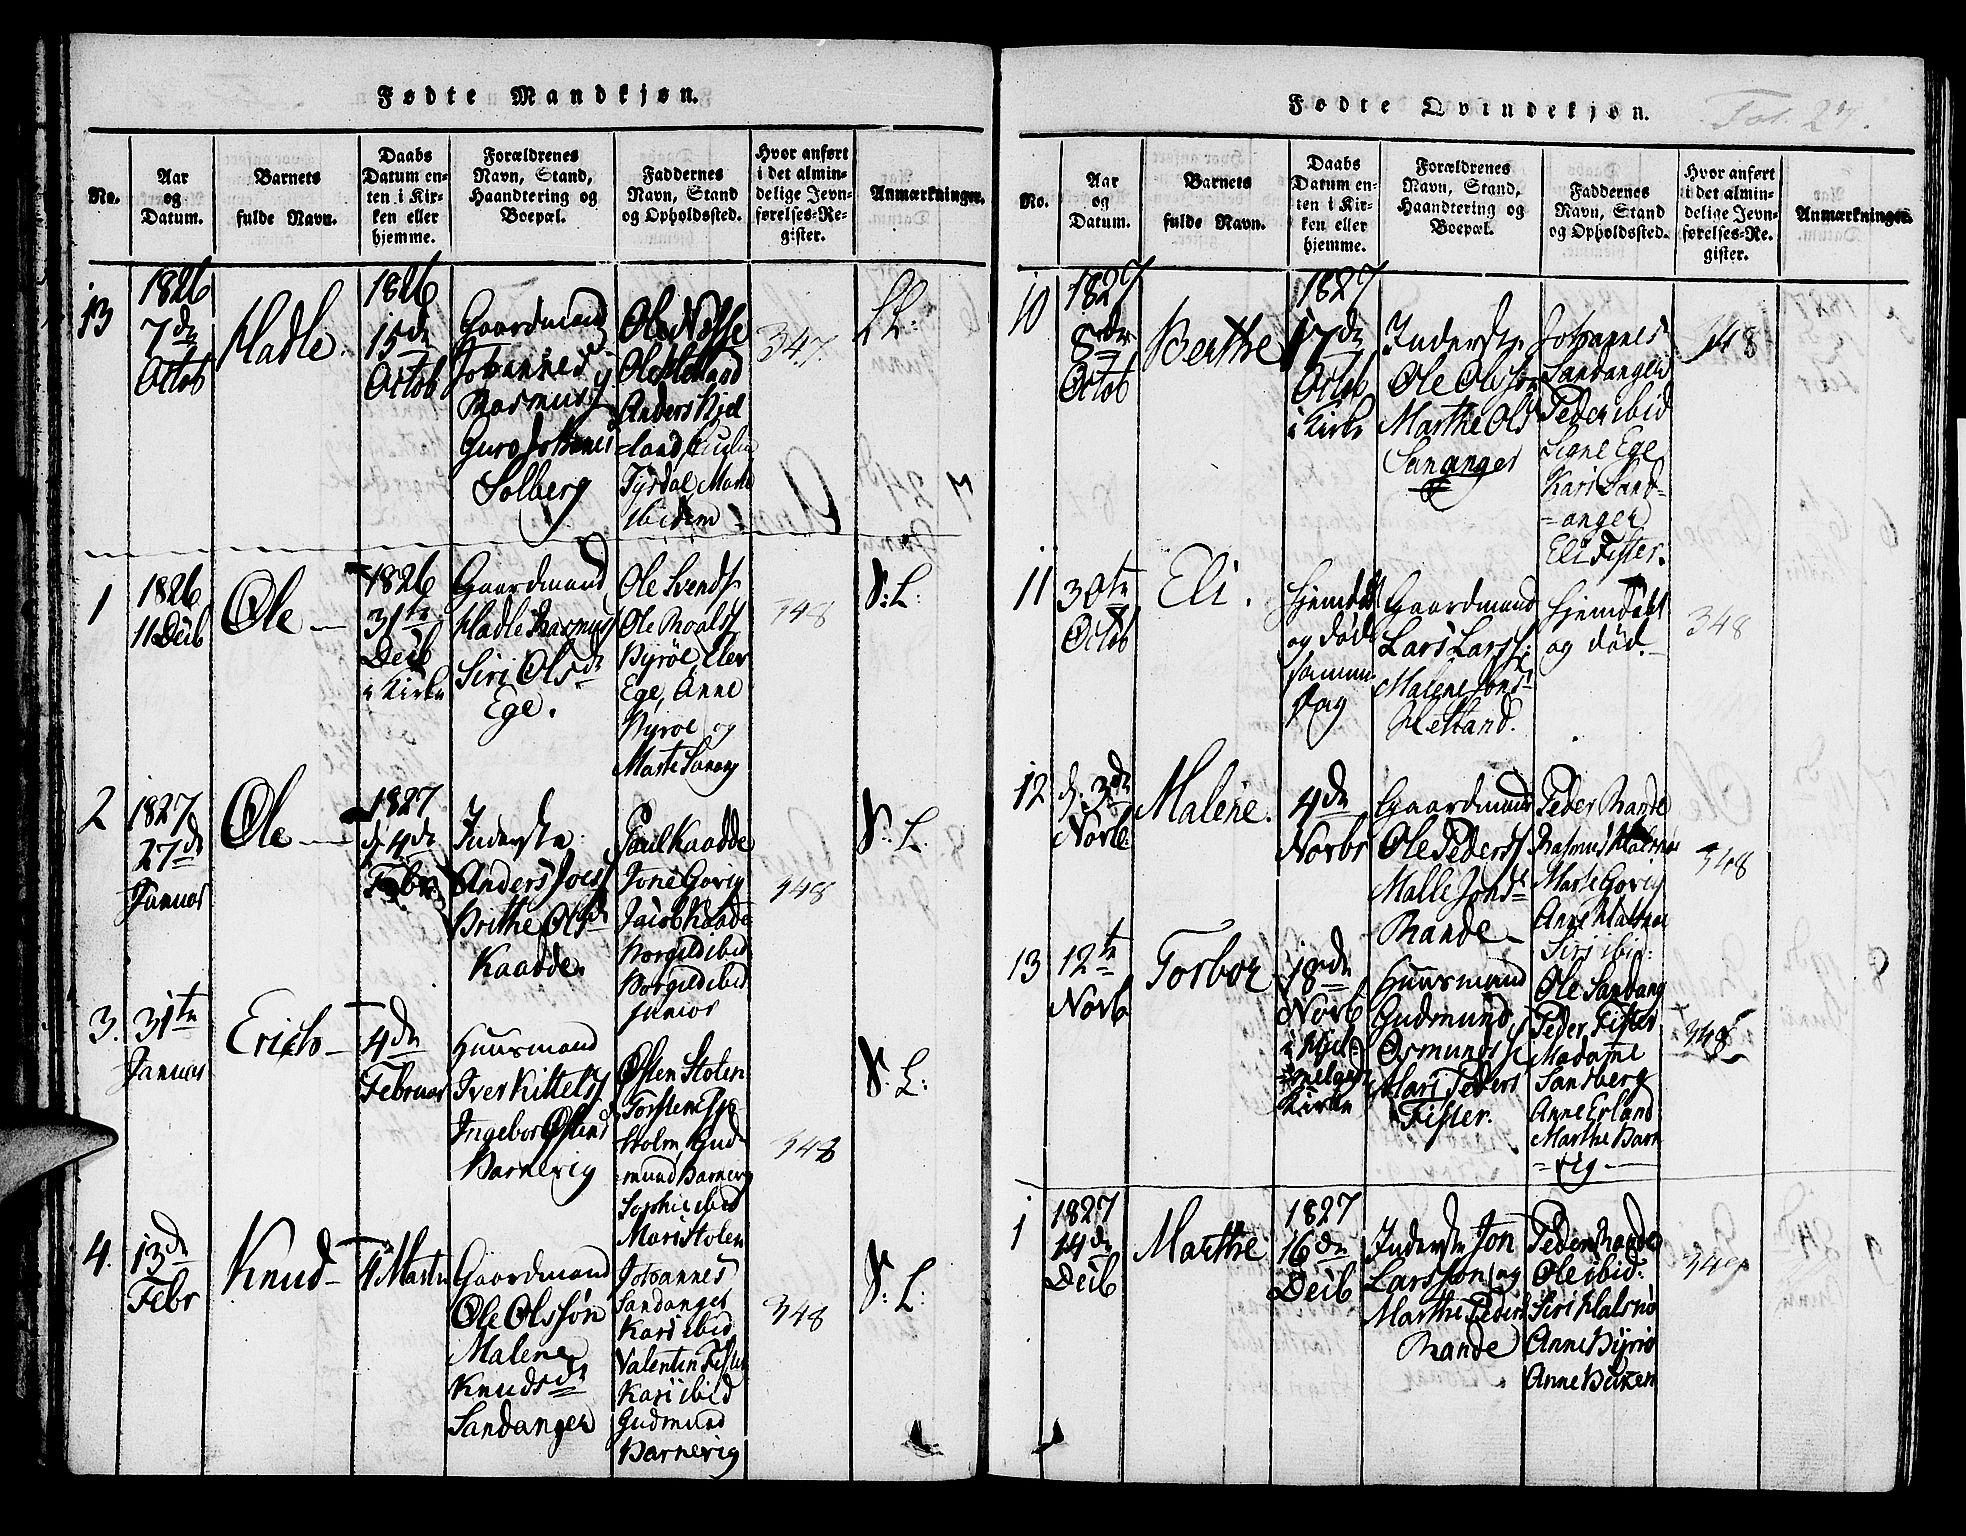 Fødte Mandkjøn.
No.
Aar
og
Datum.
Barnets
fulde Navn.
Daabs
Datum en-
ten i Kir-
ken eller
hjemme.
Forældrenes
Navn, Stand,
Haandtering og
Boepæl.
Faddernes
Navn, Stand
og Opholdssted.
Hvor anført
i det almin-
delige Jevn-
førelses-Re-
gister.
Anmærkninger.
13
1826
7de
Octob
Hadle.
1826
15de
Octob
Gaardmand
Johannes
Rasmuss
Guro
Solberg
Ole Nesse
Ole
Anders Kjel
-land,
Tysdal, Marte
ibidem
347
1
1826
11 Decb
Ole
1826
31te
Decb
i Kirke
Gaardmand
Hadle Rasmuss
Siri Olsd
Ege.
Ole Svends
Ole Roalss
Byrøe, Elev
Ege, Anne
Byroe og
Marte
348
S: L:
2
1827
27de
Januar
Ole
1827
d 4de
Febr
Inderste
Anders Joess
Brithe Olsd
Kaadde.
Paul Kaadde
Jone Govig
Jacob Kaade
Borgild ibid
Borgild ibid
junior
348
S: L:
3.
31te
Januar
Erich
4de
Februar
Huusmand
Iver Kittelss
Ingebor
Barnevig
Østen Stolen
Torsten
Holm, Gud-
mund Barnevig
Sophie ibid
Mari Stolen
348
S: L:
4.
13de
Febr
Knud
4 Martii
Gaardmand
Ole Olssøn
Malene
Knudsd
Sandanger
Johannes
Sandanger
Kari ibid
Valentin Fister
Kari ibid
Gudmund
Barnevig
348
S: L:
Fødte Qvindekjøn.
Fol. 27.
No.
Aar
og
Datum.
Barnets
fulde Navn.
Daabs
Datum en-
ten i Kir-
ken eller
hjemme.
Forældrenes
Navn, Stand,
Haandtering og
Boepæl.
Faddernes
Navn, Stand
og Opholdssted.
Hvor anført
i det almin-
delige Jevn-
førelses-Re-
gister.
Anmærkninger.
10
1827
8de
Octob
Berthe
1827
17de
Octob
i Kirke
Inderste
Ole Olssøn
Marthe Olsd
Sananger
Johannes
Sandanger
Peder ibid
Signe Ege
Kari Sand-
-anger
Eli Fister.
348
11
30te
Octob
Eli.
Hjemdøbt
og død
samme
Dag
Gaardmand
Lars Larss
Malene Jonsd
Hetland.
Hjemdøbt
og død.
348
12
d. 3de
Novb.
Malene.
4de
Novbr
Gaardmand
Ole Pederss
Malle Jonsd
Rande
Peder Rande
Rasmus
Marte Govig
Anne
Siri ibid:
348
13
12te
Novb
Torbor
18de
Novb
i Hjel-
melands
Kirke
Huusmand
Gudmund
Osmundss
Mari Peders
Fister.
Ole Sandang
Peder Fister
Madame
Sandberg
Anne Erland
Marthe Barn
-vig
348
1
1827
14de
Decb
Marthe
1827
16de
Decb
Inderste Jon
Larssøn og
Marthe Pedersd
Rande
Peder Rande
Ole ibid:
Siri Halsnø
Anne Byrø
Anne
349